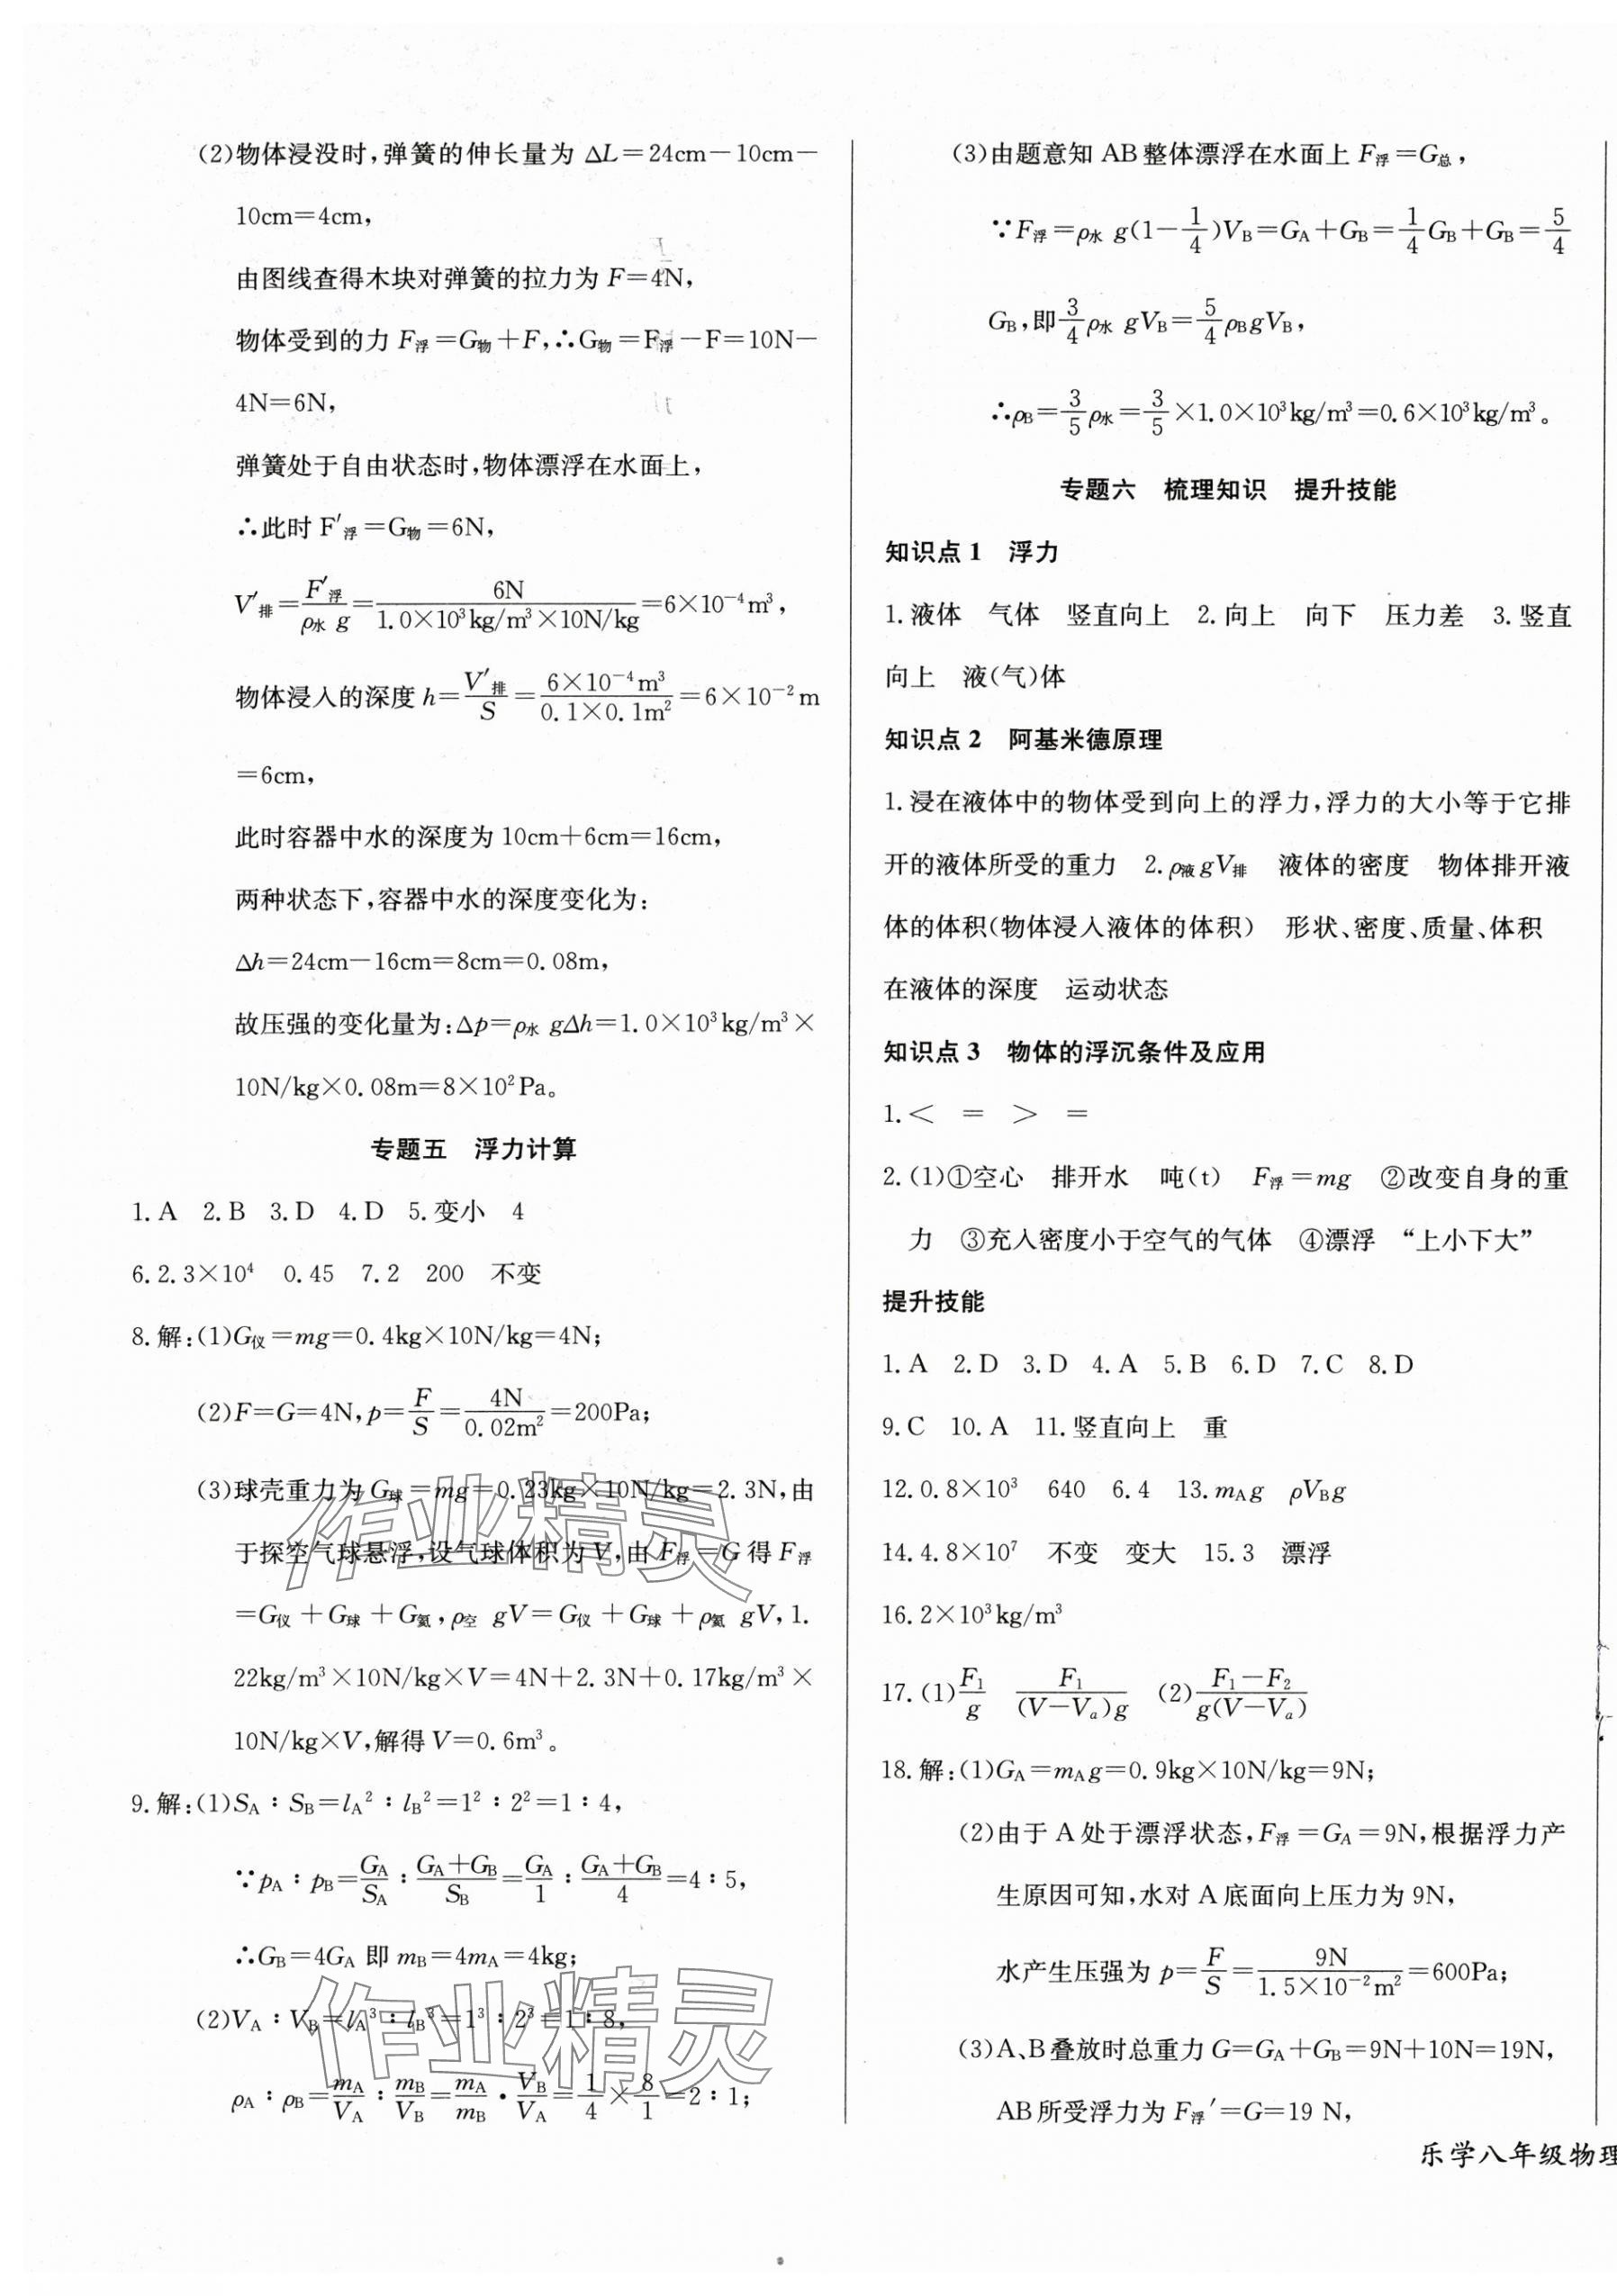 (2)物体浸没时,弹簧的伸长量为 ΔL=24cm-10cm-
10cm=4cm,
由图线查得木块对弹簧的拉力为 F=4N,
物体受到的力 F浮=G物+F,∴G物=F浮-F=10N-
4N=6N,
弹簧处于自由状态时,物体漂浮在水面上,
∴此时 F′浮=G物=6N,
V′排=F′浮/ρ水 g=6N/1.0×10³kg/m³×10N/kg=6×10⁻⁴m³,
物体浸入的深度 h=V′排/S=6×10⁻⁴m³/0.1×0.1m²=6×10⁻²m
=6cm,
此时容器中水的深度为 10cm+6cm=16cm,
两种状态下,容器中水的深度变化为:
Δh=24cm-16cm=8cm=0.08m,
故压强的变化量为:Δp=ρ水 gΔh=1.0×10³kg/m³×
10N/kg×0.08m=8×10²Pa。
专题五 浮力计算
1.A 2.B 3.D 4.D 5.变小 4
6.2.3×10⁴ 0.45 7.2 200 不变
8.解:(1)G仪=mg=0.4kg×10N/kg=4N;
(2)F=G=4N,p=F/S=4N/0.02m²=200Pa;
(3)球壳重力为 G球=mg=0.23kg×10N/kg=2.3N,由
于探空气球悬浮,设气球体积为 V,由 F浮=G 得 F浮
=G仪+G球+G氦,ρ空 gV=G仪+G球+ρ氦 gV,1.
22kg/m³×10N/kg×V=4N+2.3N+0.17kg/m³×
10N/kg×V,解得 V=0.6m³。
9.解:(1)SA∶SB=lA²∶lB²=1²∶2²=1∶4,
∵pA∶pB=GA/SA∶GA+GB/SB=GA/1∶GA+GB/4=4∶5,
∴GB=4GA 即 mB=4mA=4kg;
(2)VA∶VB=lA³∶lB³=1³∶2³=1∶8,
ρA∶ρB=mA/VA∶mB/VB=mA/mB·VB/VA=1/4×8/1=2∶1;
(3)由题意知 AB整体漂浮在水面上 F浮=G总,
∵F浮=ρ水 g(1-1/4)VB=GA+GB=1/4GB+GB=5/4
GB,即3/4ρ水 gVB=5/4ρBgVB,
∴ρB=3/5ρ水=3/5×1.0×10³kg/m³=0.6×10³kg/m³。
专题六 梳理知识 提升技能
知识点1 浮力
1.液体 气体 竖直向上 2.向上 向下 压力差 3.竖直
向上 液(气)体
知识点2 阿基米德原理
1.浸在液体中的物体受到向上的浮力,浮力的大小等于它排
开的液体所受的重力 2.ρ液gV排 液体的密度 物体排开液
体的体积(物体浸入液体的体积) 形状、密度、质量、体积
在液体的深度 运动状态
知识点3 物体的浮沉条件及应用
1.< = > =
2.(1)①空心 排开水 吨(t) F浮=mg ②改变自身的重
力 ③充入密度小于空气的气体 ④漂浮 “上小下大”
提升技能
1.A 2.D 3.D 4.A 5.B 6.D 7.C 8.D
9.C 10.A 11.竖直向上 重
12.0.8×10³ 640 6.4 13.mAg ρVBg
14.4.8×10⁷ 不变 变大 15.3 漂浮
16.2×10³kg/m³
17.(1)F₁/g F₁/(V-Va)g (2)F₁-F₂/g(V-Va)
18.解:(1)GA=mAg=0.9kg×10N/kg=9N;
(2)由于 A 处于漂浮状态,F浮=GA=9N,根据浮力产
生原因可知,水对 A 底面向上压力为 9N,
水产生压强为 p=F/S=9N/1.5×10⁻²m²=600Pa;
(3)A、B叠放时总重力 G=GA+GB=9N+10N=19N,
AB所受浮力为 F浮′=G=19 N,
乐学八年级物理
作业精灵
作业精灵